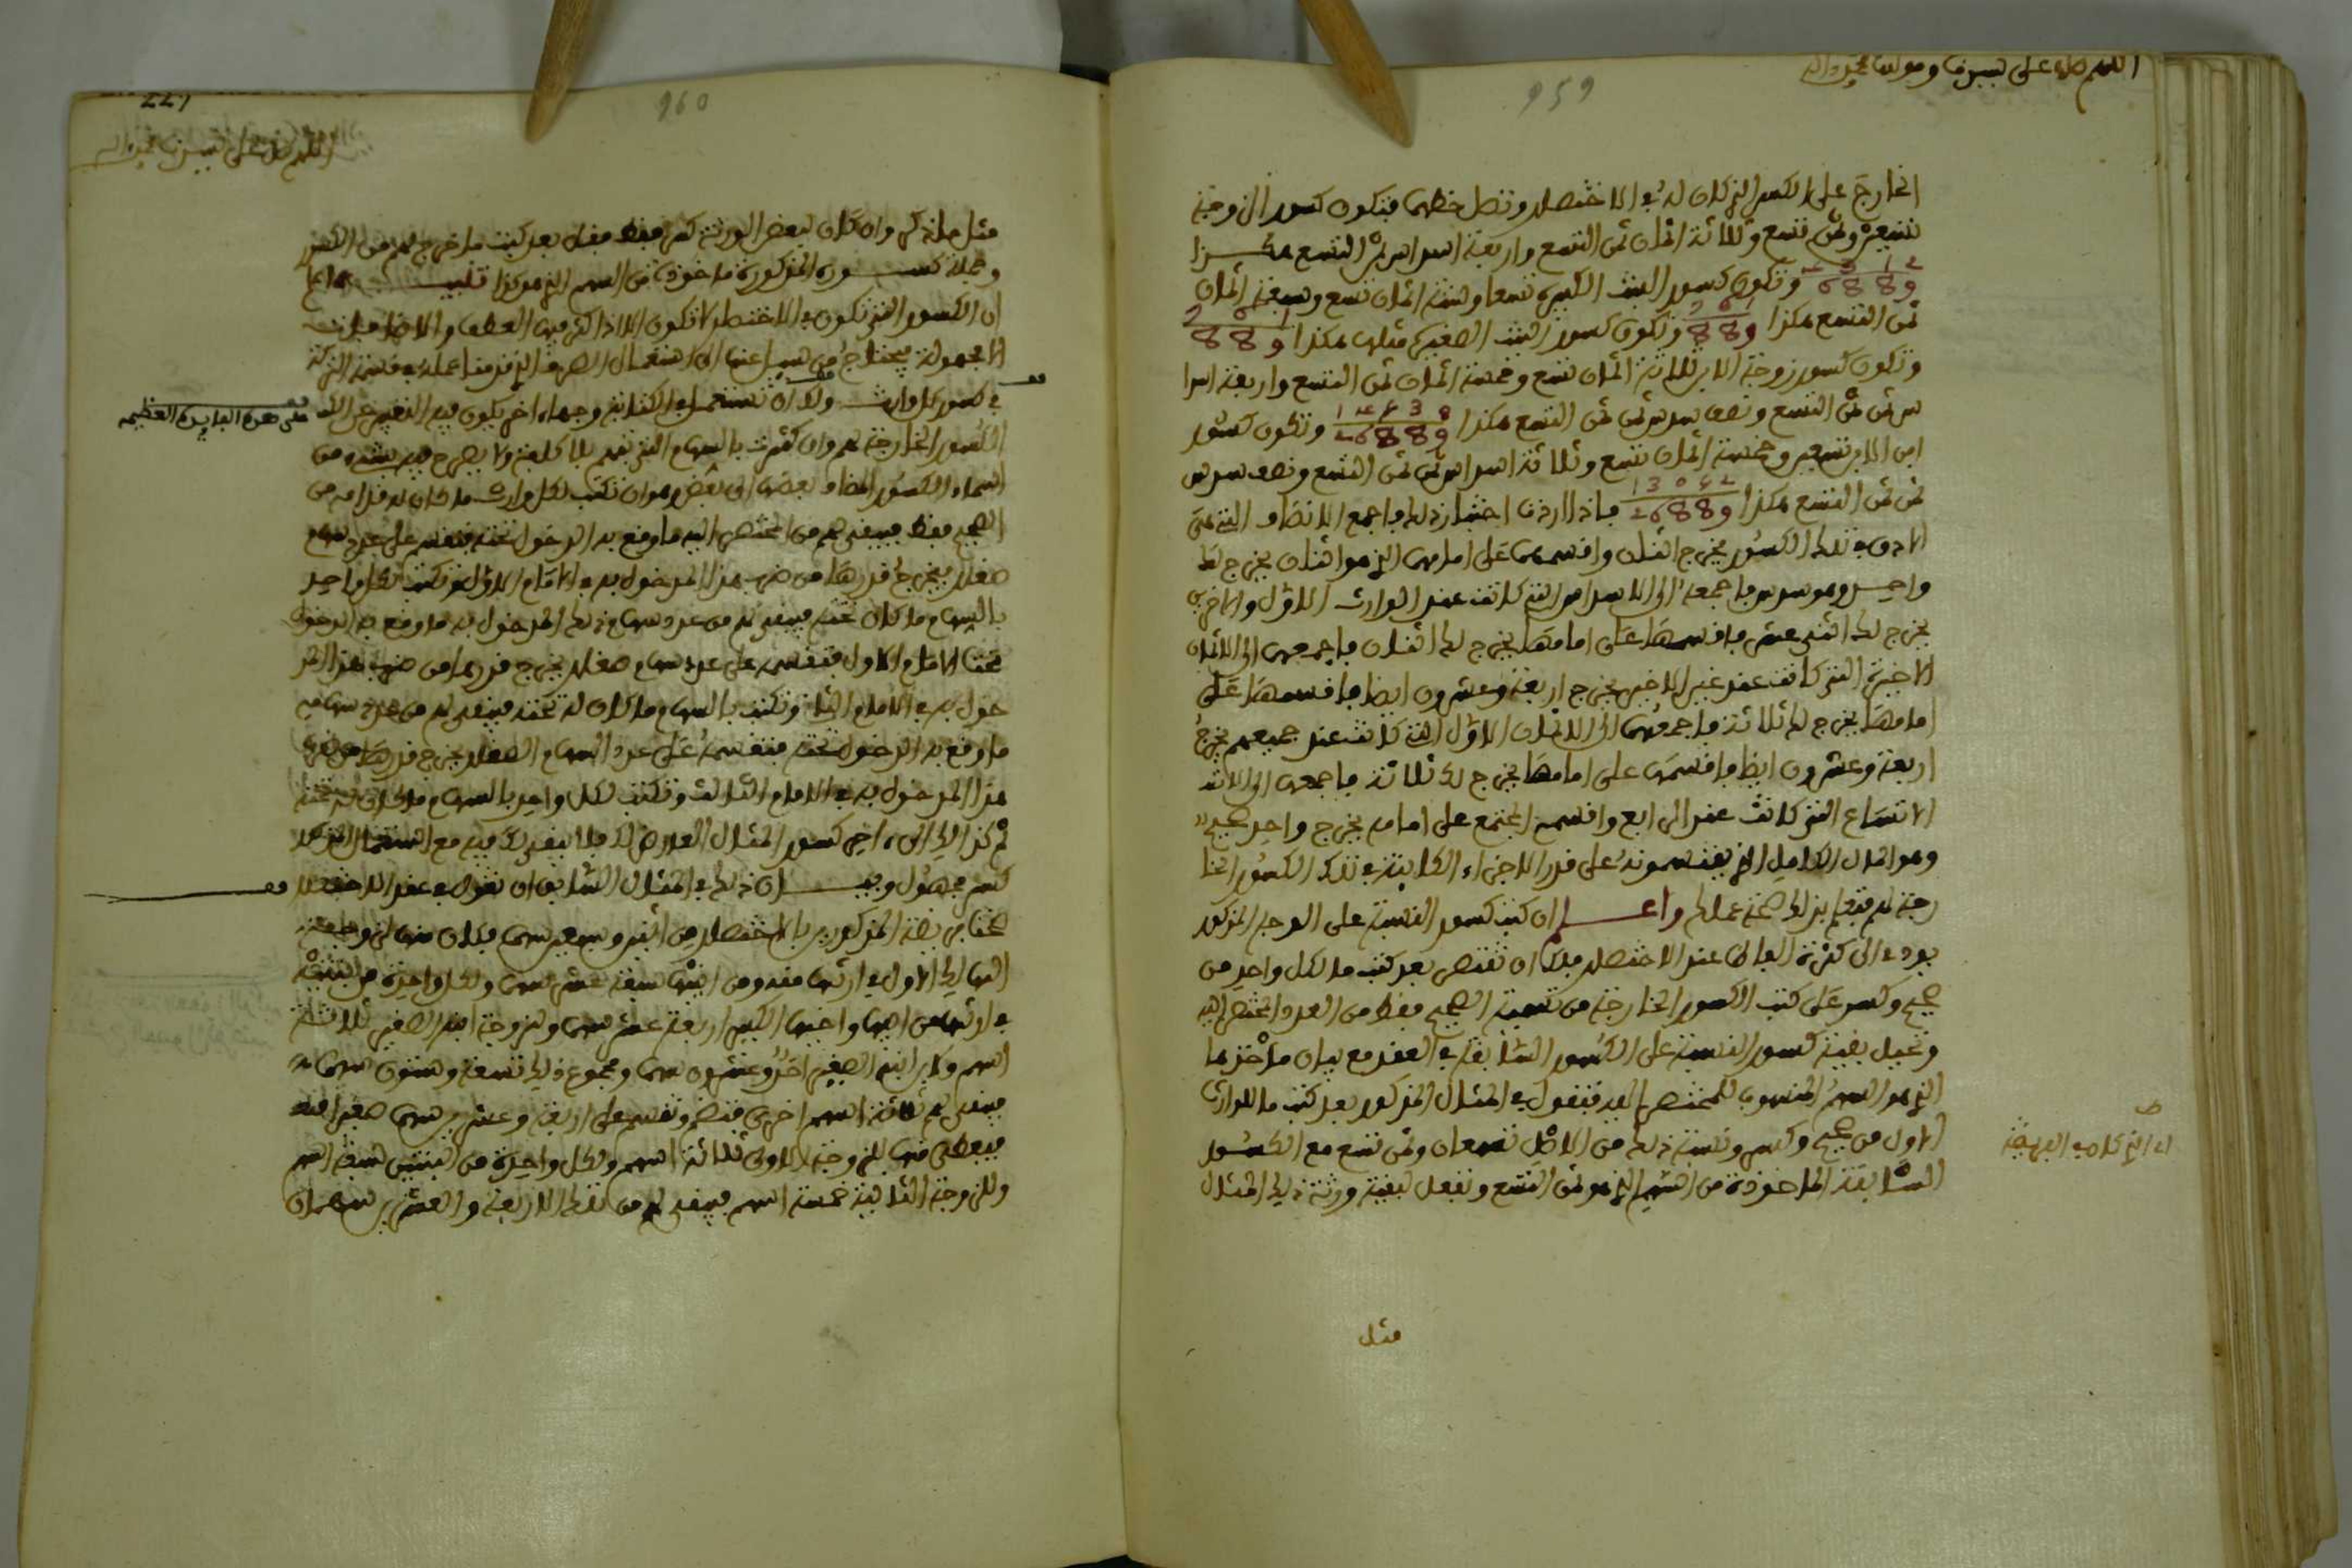 اللهم صل على سيدنا ومولانا محمد وآله
959
الخارج على الكسر الذي كان له في الاختصار وتصل خطهما فتكون كسور الزوجة
تسعين وثمن تسع وثلاثة اثمان ثمن التسع واربعة اسداس ثمن التسع هكذا
وتكون كسور البنت الكبيرة تسعا وستة اثمان تسع وسبعة اثمان
ثمن التسع هكذا وتكون كسور البنت الصغيرة مثلها هكذا
وتكون كسور زوجة الابن ثلاثة اثمان تسع وخمسة اثمان ثمن التسع واربعة اسدا
س ثمن ثمن التسع ونصف سدس ثمن ثمن التسع هكذا وتكون كسور
ابن الابن تسعين وخمسة اثمان تسع وثلاثة اسداس ثمن ثمن التسع ونصف سدس
ثمن ثمن التسع هكذا فاذا اردت اختبار ذلك فاجمع الانصاف التي هي
الادق في تلك الكسور يخرج اثنان واقسمهما على امامهما الذي هو اثنان يخرج لك
واحد وهو سدس فاجمعه الى الاسداس التي كانت عند الوارث الاول والاخرين
يخرج لك اثني عشر فاقسمها على امامها يخرج لك اثنان فاجمعهما الى الاثمان
الاخيرة التي كانت عند غير الاخير يخرج اربعة وعشرون ايضا فاقسمها على
امامها يخرج لك ثلاثة فاجمعها الى الاثمان الاول التي كانت عند جميعهم يخرج
اربعة وعشرون ايضا فاقسمها على امامها يخرج لك ثلاثة فاجمعها الى
الاتساع التي كانت عند الرابع واقسم المجتمع على امامه يخرج واحد صحيح
وهو المال الكامل الذي يقتسمونه على قدر الاجزاء الكائنة في تلك الكسور الخا
رجة لهم فتعلم بذلك صحة عملك واعلم ان كتب كسور القسمة على الوجه المذكور
يودي الى كثرة العمل عند الاختصار فلك ان تقتصر بعد كتب ما لكل واحد من
صحيح وكسر على كتب الكسور الخارجة من تسمية الصحيح فقط من العدد المختصر اليه
وتحيل بقية كسور القسمة على الكسور السابقة في العقد مع بيان ماخذها
الذي هو السهم المنسوب للمختصر اليه فتقول في المثال المذكور بعد كتب ما للوارث
الاول من صحيح وكسر ونسبة ذلك من الاصل تسعان وثمن تسع مع الكسور
السابقة الماخوذة من السهم الذي هو ثمن التسع وتفعل لبقية ورثة ذلك المثال
مثل
960
227
اللهم صل على سيدنا محمد وآله
مثل ما ذكر وان كان لبعض الورثة كسر فقط فقل بعد كتب ما خرج لهم من الكسر
وجملة كسوره المذكورة ماخوذة من السهم الذي هو كذا تنبيه اعلم
ان الكسور التي تكون في الاختصار لا تكون الا اذا كثر فيها العطف والاضافات
الا مجهولة فيحتاج من يسال عنها الى استعمال الصرف الذي قدمنا عمله في قسمة التركة
في كسور كل وارث ولك ان تستعمل في الكتابة وجها اخر يكون فيه التعبير عن تلك
على هذه الفايدة العظيمة
الكسور الخارجة لهم وان كثرت بالسهام التي تفهم بلا كلفة ولا يصرح فيه بشيء من
اسماء الكسور المضاف بعضها الى بعض وهو ان تكتب لكل وارث ما كان له قدامه من
الصحيح فقط فيبقى لهم من المختصر اليه ما وقع به الدخول تحته فتقسم على عدد سهام
صغار يخرج قدرها من ضرب هذا المدخول به في الامام الاول وتكتب لكل واحد
بالسهام ما كان تحته فيبقى لهم من عدد سهام ذلك المدخول به ما وقع به الدخول
تحت الامام الاول فتقسمه على عدد سهام صغار يخرج قدرها من ضرب هذا المد
خول به في الامام الثاني وتكتب بالسهام ما كان له تحته فيبقى لهم من عدد سهامه
ما وقع به الدخول تحته فتقسمه على عدد السهام الصغار يخرج قدرها من ضرب
هذا المدخول به في الامام الثالث وتكتب لكل واحد بالسهام ما كان له تحته
ثم كذلك الى اخر كسور المثال المعروض لك فلا يبقى لك فيه مع استعمال ذلك
كسر مجهول وبيان ذلك في المثال السابق ان تقول في عقد الاختصار
تحت فريضة المذكورين بالاختصار من اثنين وسبعين سهما فكان منها لزوجة
الهالك الاول في ارثها منه ومن ابنها سبعة عشر سهما ولكل واحدة من البنتين
في ارثها من ابيها واخيها الكبير اربعة عشر سهما ولزوجة ابنه الصغير ثلاثة
اسهم ولابن ابنه الصغير احد وعشرون سهما ومجموع ذلك تسعة وستون سهما
فيبقى لهم ثلاثة اسهم اخرى فتضم وتقسم على اربعة وعشرين سهما صغيرا
فيعطى منها للزوجة الاولى ثلاثة اسهم ولكل واحدة من البنتين سبعة اسهم
وللزوجة الثانية خمسة اسهم فيبقى لهم من تلك الاربعة والعشرين سهمان